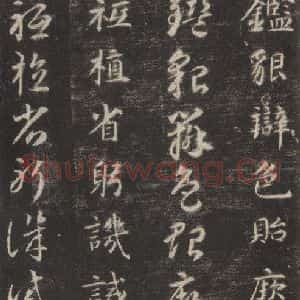 鑑貌辯色貽厥
鑑貌辯色貽厥
祗植省躬譏誡
祗植省躬譏誡
Shufawang.CN